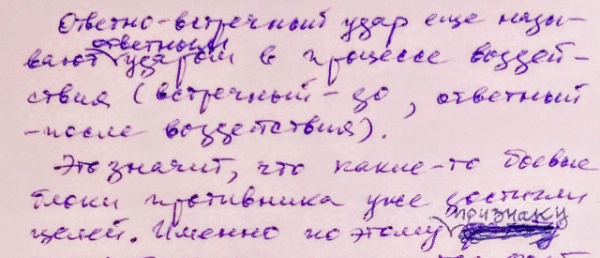 Ответно-встречный удар еще назы-
вают ответным ударом в процессе воздей-
ствия (встречный - до, ответный
- после воздействия).
Это значит, что какие-то боевые
блоки противника уже достигли
целей. Именно по этому признаку